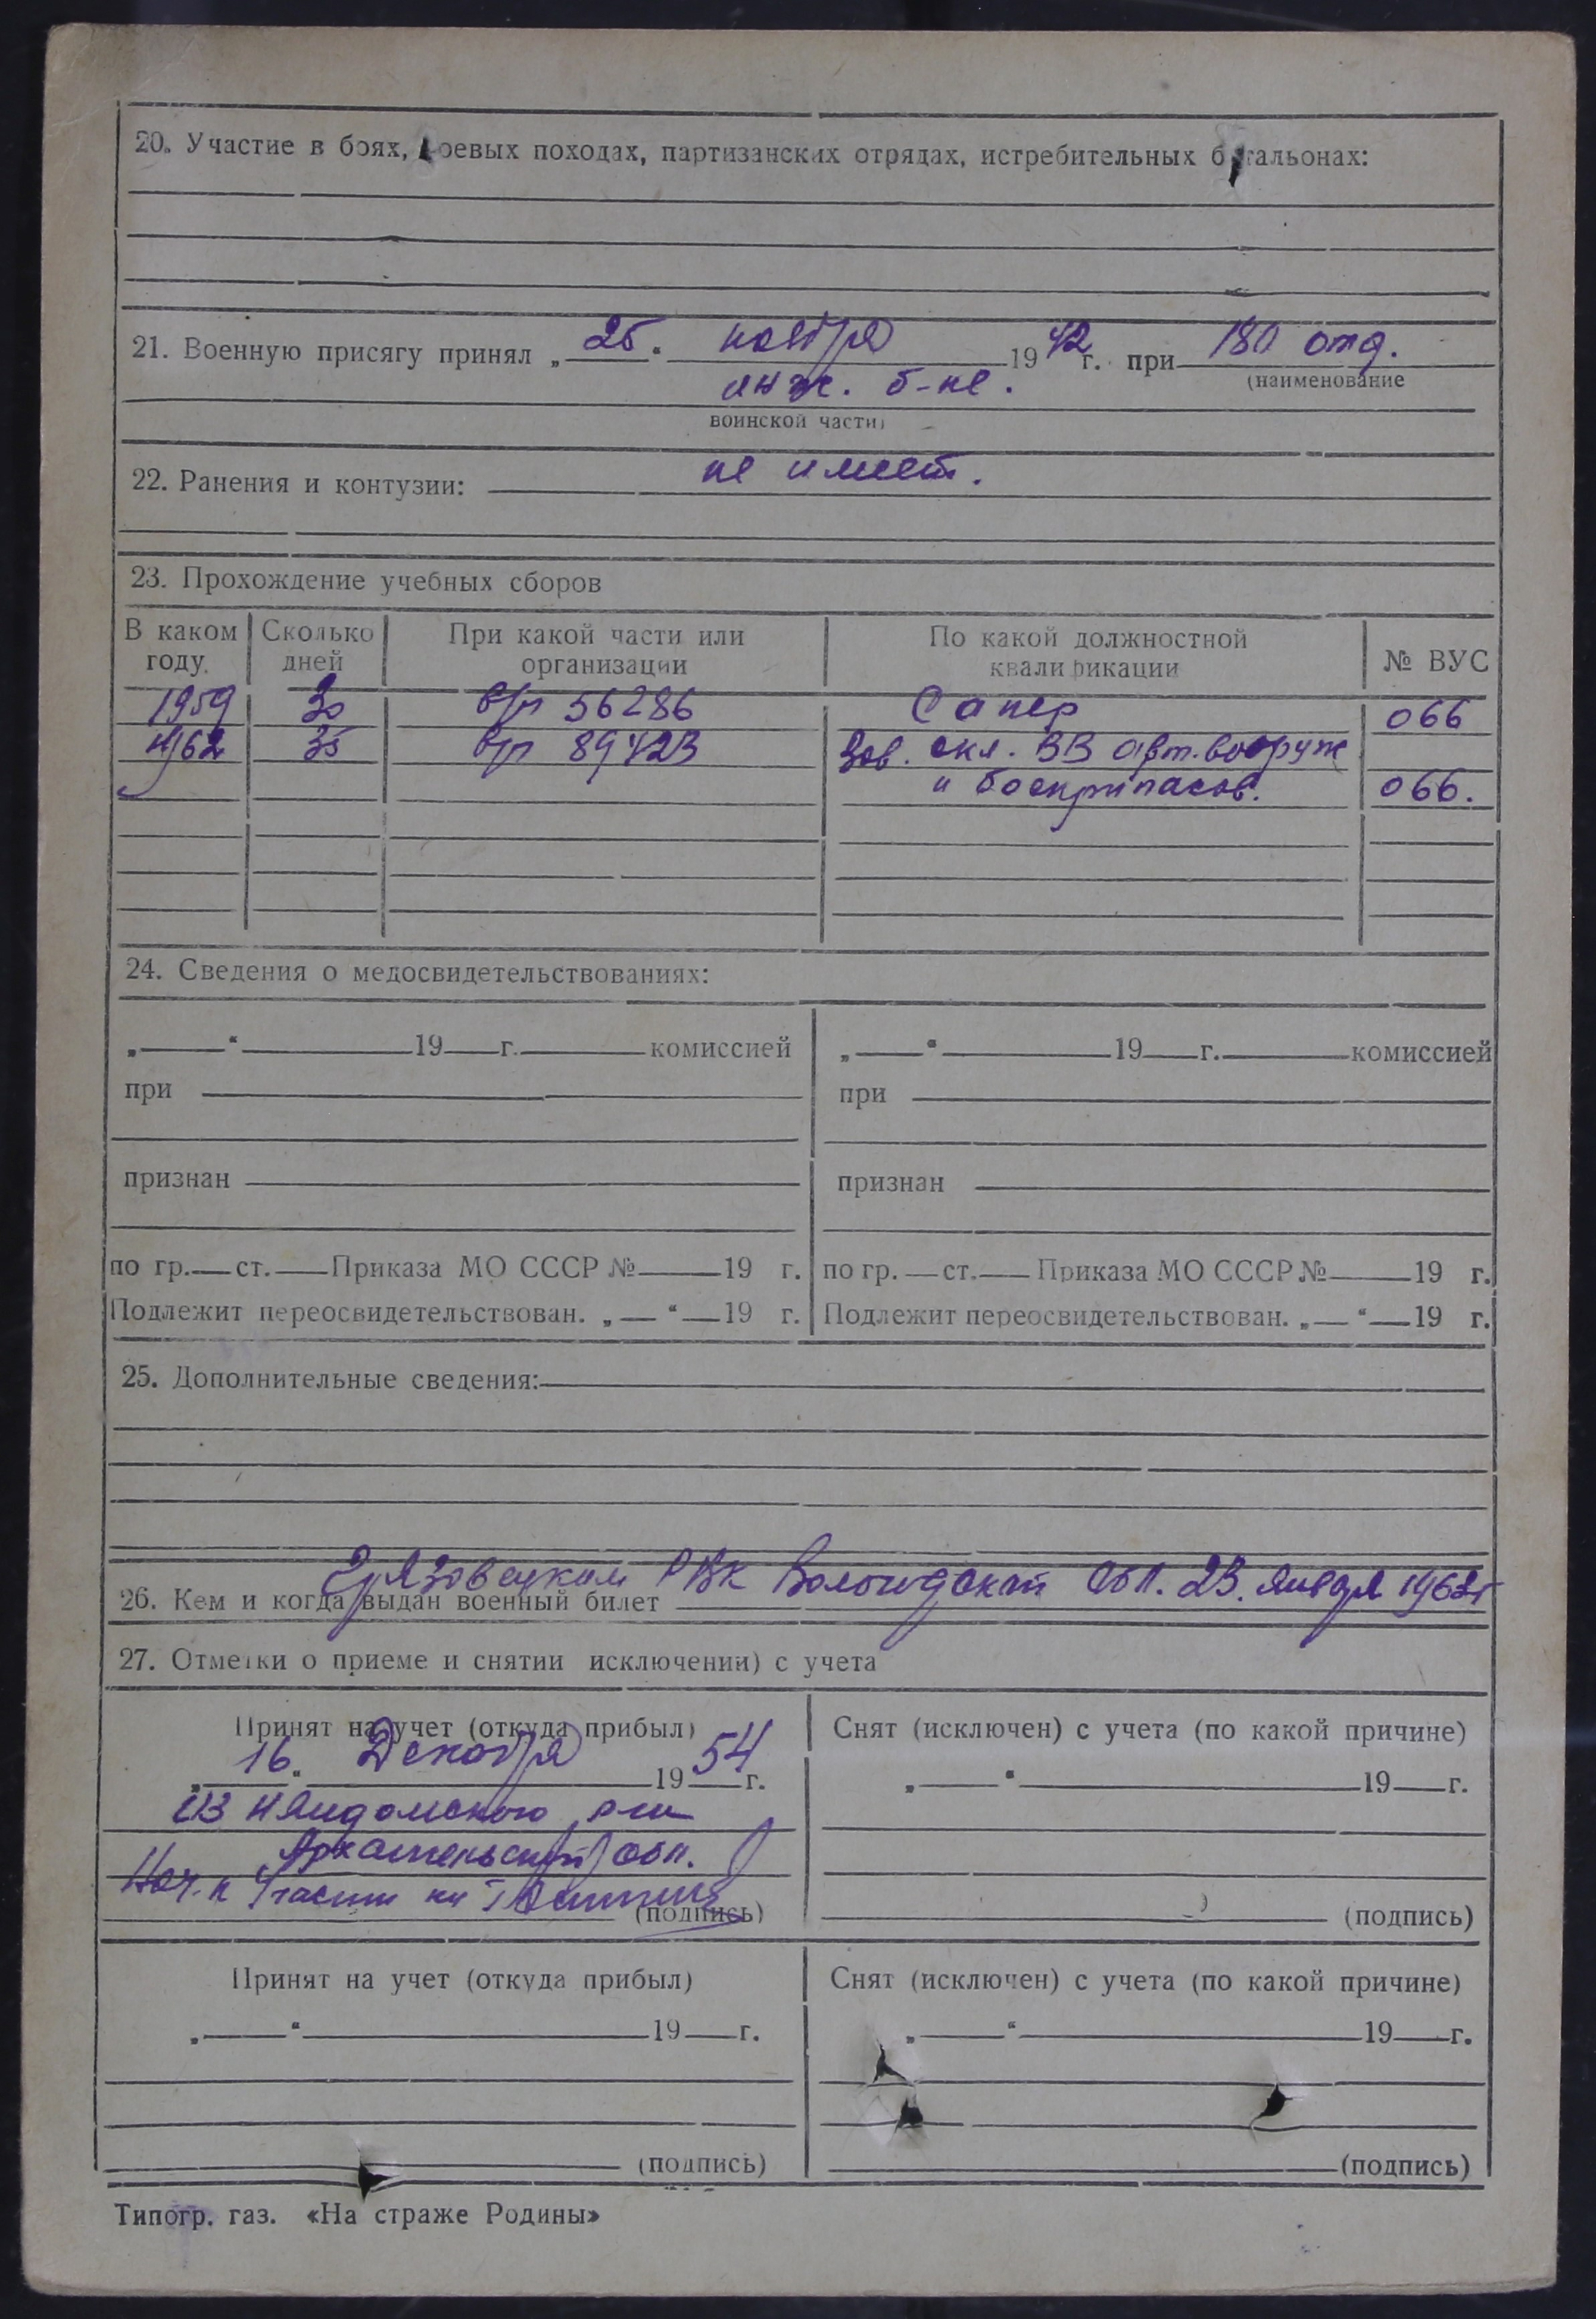 20. Участие в боях, боевых походах, партизанских отрядах, истребительных батальонах:
21. Военную присягу принял „ 25 “ ноября 1942 г. при 180 отд.
(наименование
инж. б-не.
воинской части)
22. Ранения и контузии: не имеет.
23. Прохождение учебных сборов
В каком году. Сколько дней При какой части или организации По какой должностной квалификации № ВУС
1959 30 в/ч 56286 Сапер 066
1962 35 в/ч 89423 Зав. скл. ВВ арт. вооруж
и боеприпасов. 066.
24. Сведения о медосвидетельствованиях:
„ “ 19 г. комиссией „ “ 19 г. комиссией
при при
признан признан
по гр. ст. Приказа МО СССР № 19 г. по гр. ст. Приказа МО СССР № 19 г.
Подлежит переосвидетельствован. „ “ 19 г. Подлежит переосвидетельствован. „ “ 19 г.
25. Дополнительные сведения:
26. Кем и когда выдан военный билет Грязовецким РВК Вологодской обл. 23. января 1962г
27. Отметки о приеме и снятии исключении) с учета
Принят на учет (откуда прибыл) Снят (исключен) с учета (по какой причине)
„ 16 “ Декабря 1954 г. „ “ 19 г.
из Няндомского р-на
Архангельской обл.
Нач. части (подпись) (подпись)
Принят на учет (откуда прибыл) Снят (исключен) с учета (по какой причине)
„ “ 19 г. „ “ 19 г.
(подпись) (подпись)
Типогр. газ. «На страже Родины»